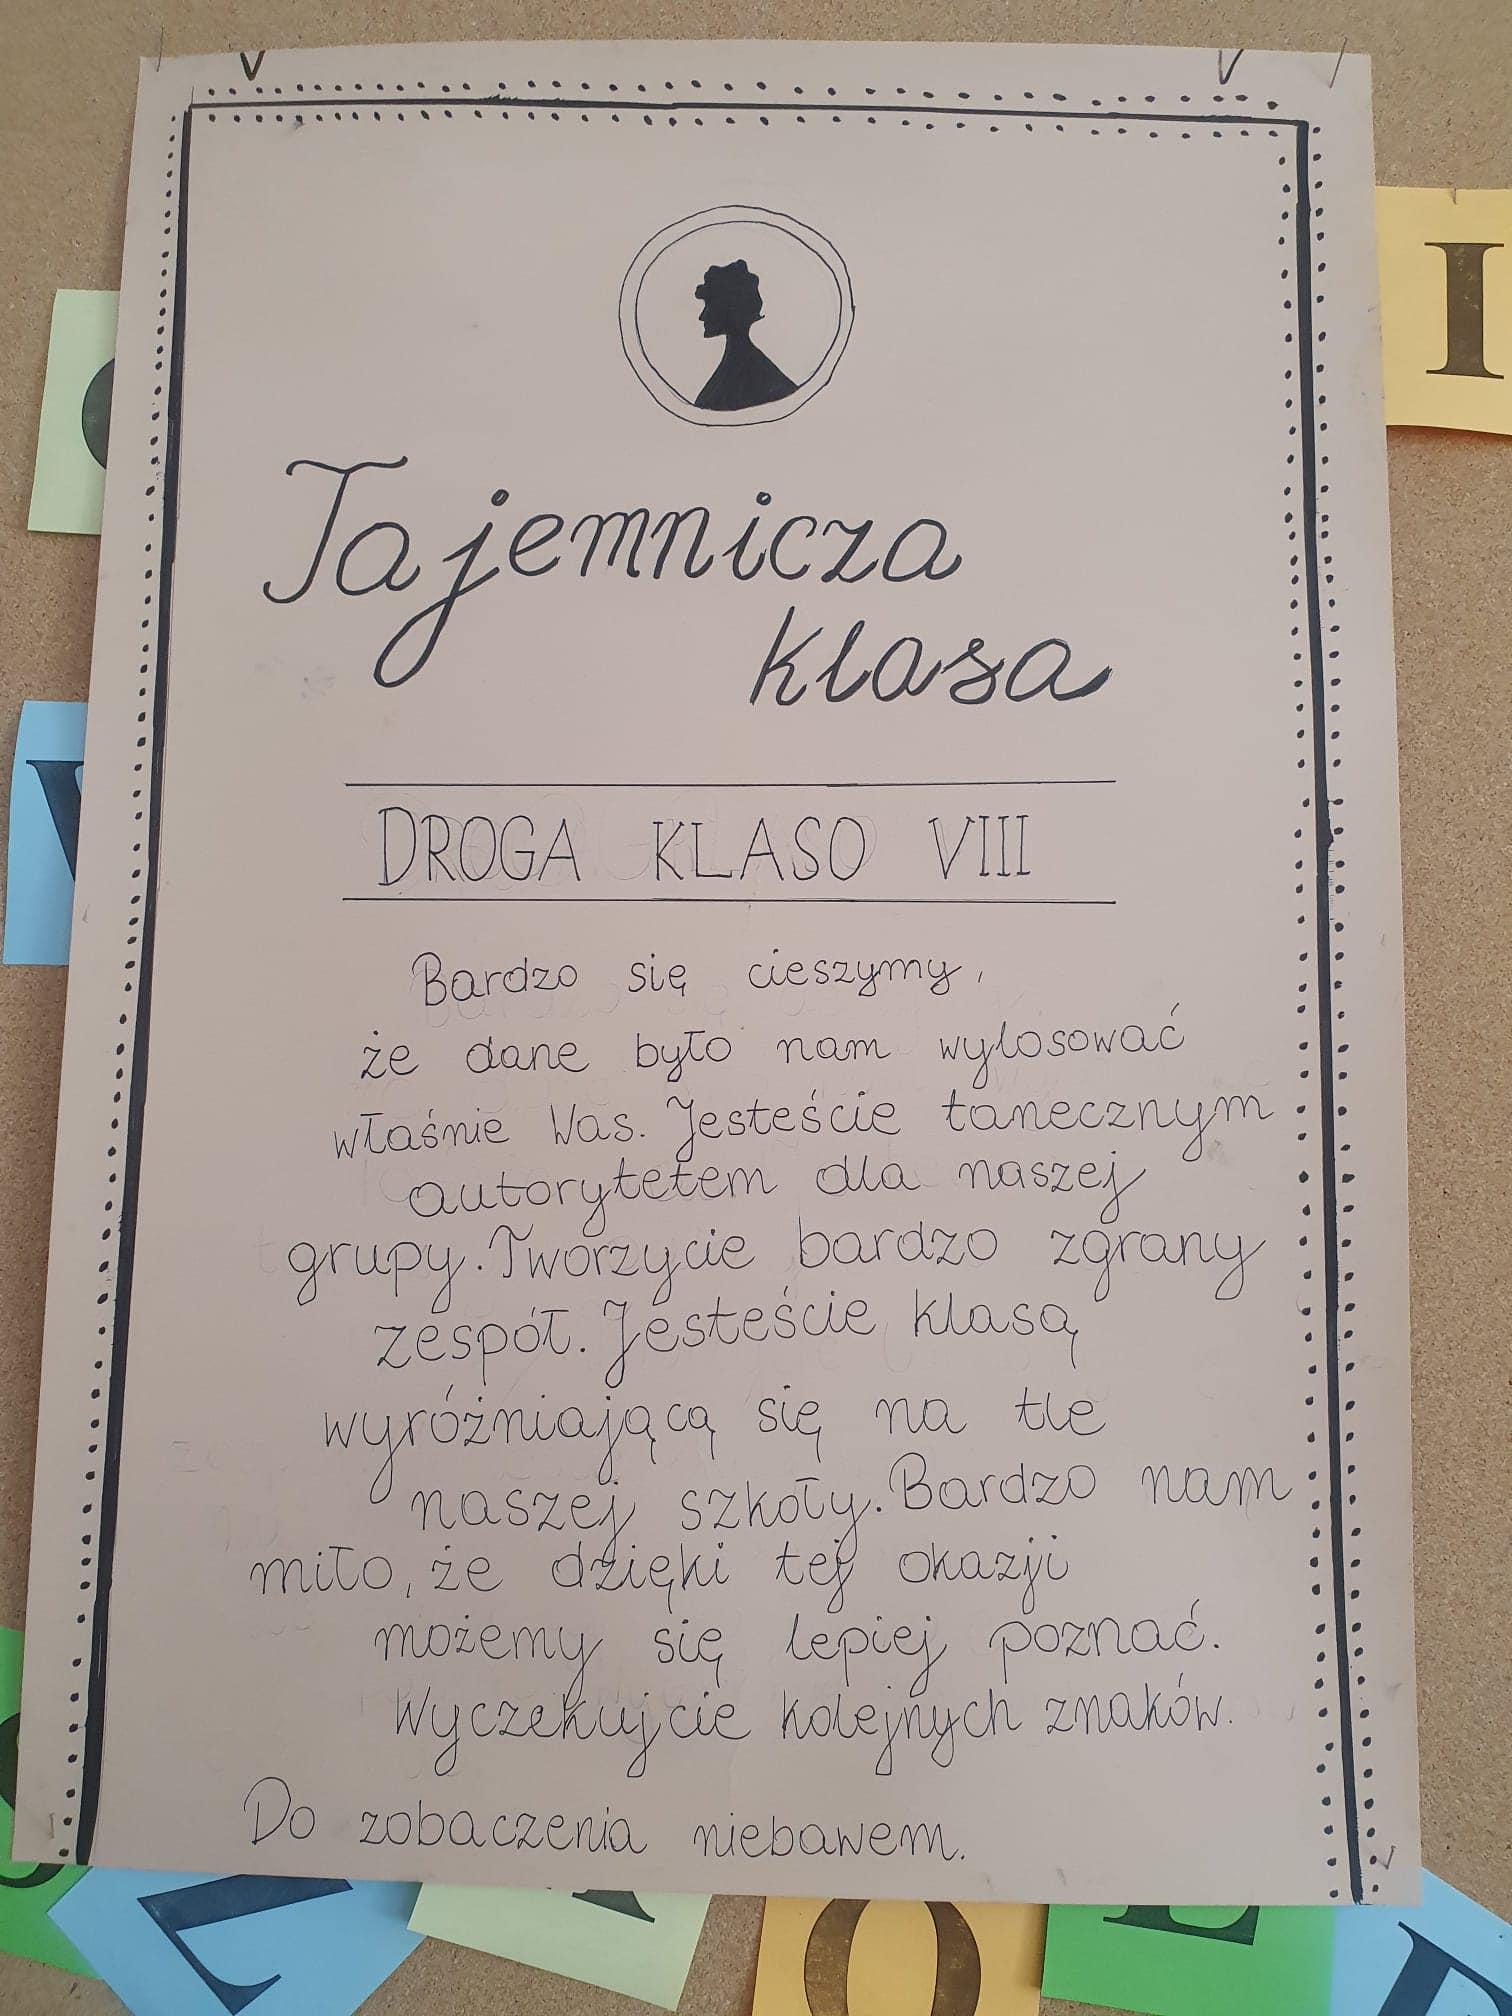 I
Tajemnicza
klasa
DROGA KLASO VIII
Bardzo się cieszymy,
że dane było nam wylosować
właśnie Was. Jesteście tanecznym
autorytetem dla naszej
grupy. Tworzycie bardzo zgrany
zespół. Jesteście klasą
wyróżniającą się na tle
naszej szkoły. Bardzo nam
miło, że dzięki tej okazji
możemy się lepiej poznać.
Wyczekujcie kolejnych znaków.
Do zobaczenia niebawem.
O